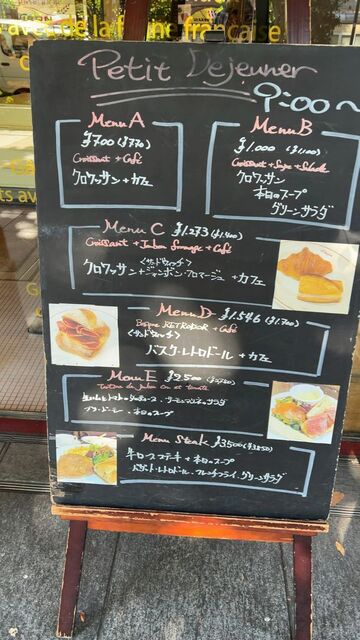 de la ferme française
Petit Dejeuner
9:00〜
Menu A
¥700 (¥770)
Croissant + Café
クロワッサン + カフェ
Menu B
¥1.000 (¥1,100)
Croissant + Soupe + Salade
クロワッサン
本日のスープ
グリーンサラダ
Menu C ¥1.273 (¥1.400)
Croissant + Jambon Fromage + Café
<サンドウィッチ>
クロワッサン + ジャンボン・フロマージュ + カフェ
Menu D ¥1.546 (¥1.700)
Basque RETRODOR + Café
<サンドウィッチ>
バスク・レトロドール + カフェ
Menu E ¥2500
Tartine du jambon cru et tomate
本日のスープ
Menu Steak ¥3500 (¥3850)
牛ロースステーキ + 本日のスープ
バゲット・レトロドール・フレンチフライ・グリーンサラダ